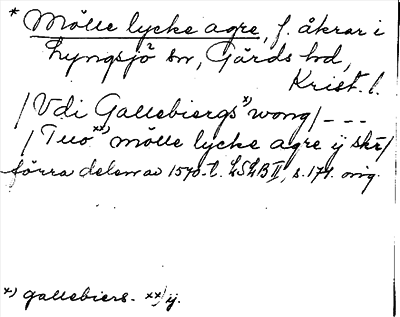 * Mölle lycke agre, f. åkrar i
Lyngsjö sn, Gärds hd,
Krist. l.
/Vdi Gallebiergs x) wong/ - - -
/Tuo xx) mölle lycke agre ij skr/
förra delen av 1570-t. LSLB II, s. 171. orig.
x) gallebiers. xx) ij.